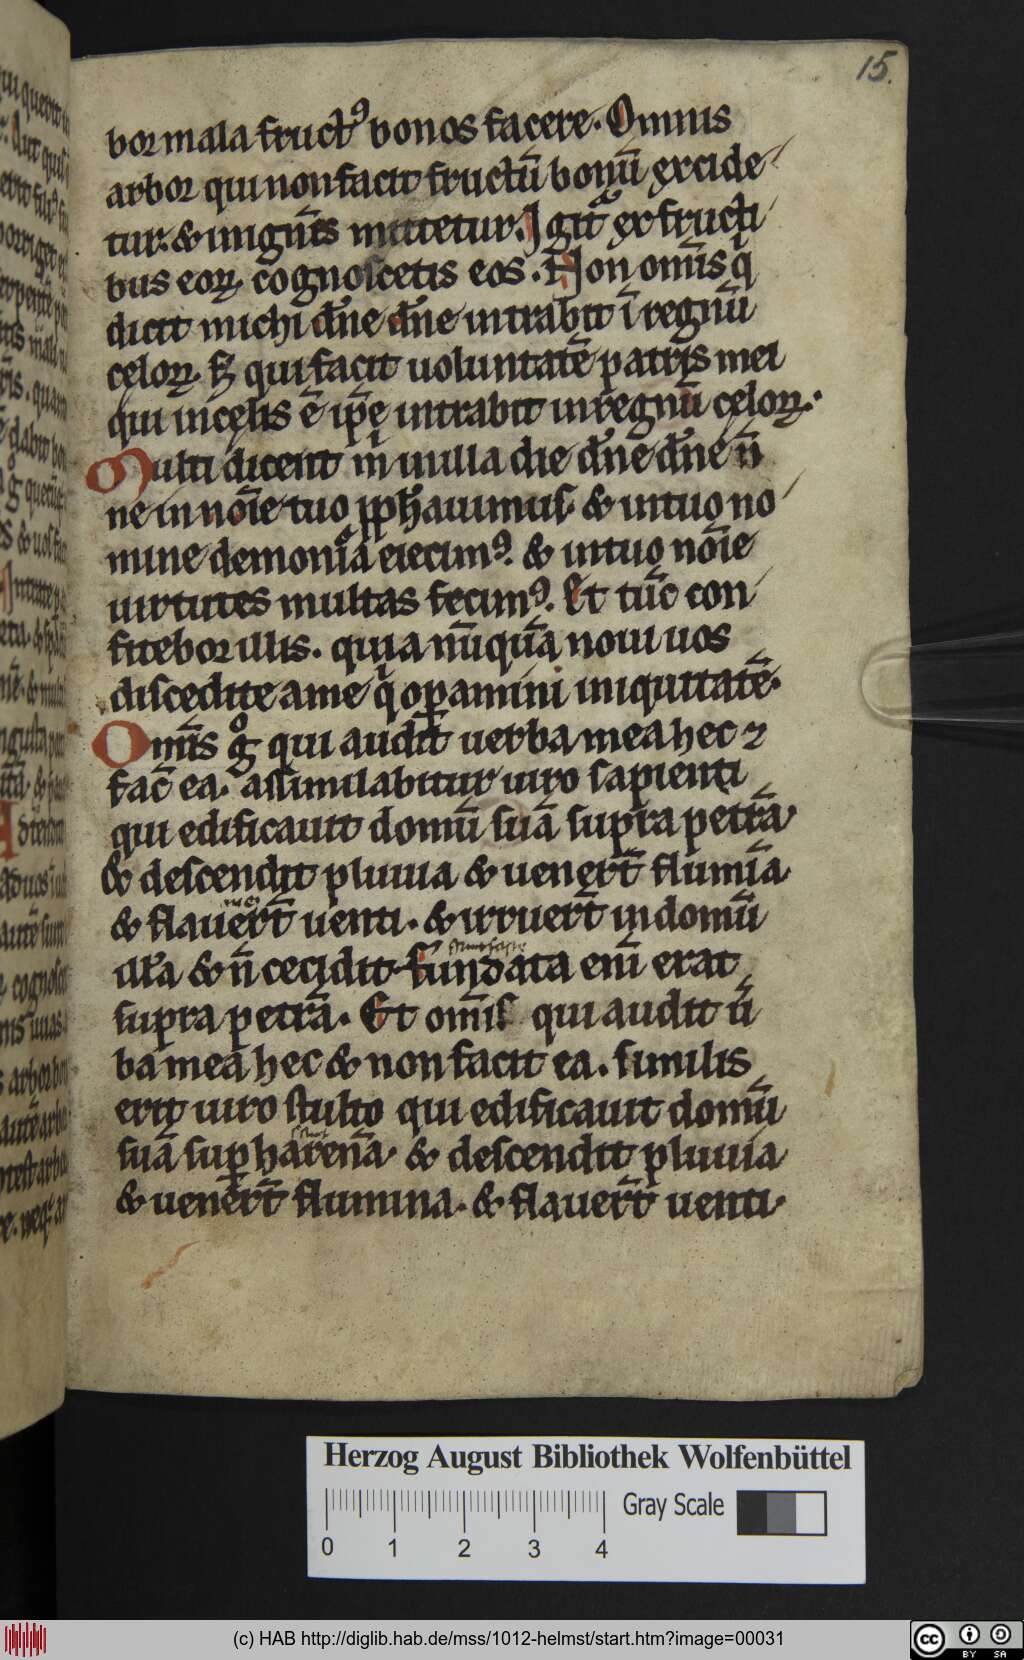 15.
bor mala fructꝰ bonos facere. Omnis
arbor qui non facit fructū bonū excide
tur. & in ignēs mittetur. Igit᷑ ex fructi
bus eoꝝ cognoscetis eos. Non om̄s q̇
dicit michi dn̄e dn̄e intrabit ī regnū
celoꝝ. sꝫ qui facit uoluntatē patris mei
qui in celis ē ip̄e intrabit in regnū celoꝝ.
Multi dicent m̄ in illa die dn̄e dn̄e n̄
ne in noīe tuo ꝓph̄auimus. & in tuo no
mine demonia eiecimꝰ. & in tuo noīe
uirtutes multas fecimꝰ. Et tūc con
fitebor illis. quia nūquā noui uos
discedite a me q̇ oꝑamini iniquitatē.
Om̄is gͦ qui audit uerba mea hec ⁊
fac̄ ea. assimilabitur uiro sapienti
qui edificauit domū suā supra petrā
& descendit pluuia & uenerт̄ flumīa
& flauerт̄ uenti. & irruerт̄ in domū
illā & n̄ cecidit fundata enī erat
supra petrā. Et om̄is qui audit ū
ba mea hec & non facit ea. similis
erit uiro stulto qui edificauit domū
suā suꝑ harenā. & descendit pluuia
& uenerт̄ flumina. & flauerт̄ uenti.
Herzog August Bibliothek Wolfenbüttel
Gray Scale
0 1 2 3 4
(c) HAB http://diglib.hab.de/mss/1012-helmst/start.htm?image=00031
cc BY SA